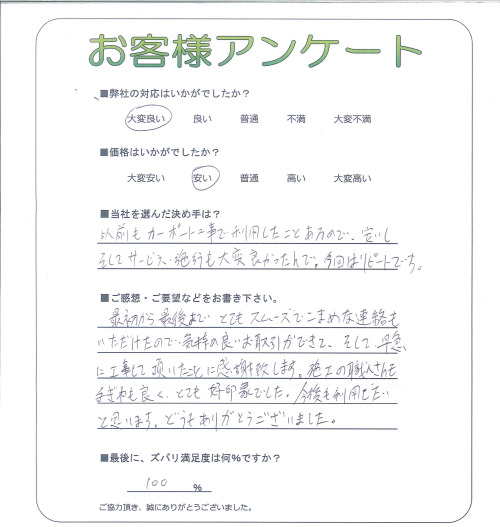 お客様アンケート
■弊社の対応はいかがでしたか？
大変良い 良い 普通 不満 大変不満
■価格はいかがでしたか？
大変安い 安い 普通 高い 大変高い
■当社を選んだ決め手は？
以前もカーポート工事で利用したことあるので、安いし
そしてサービス、施行も大変良かったんで。今回はリピートです。
■ご感想・ご要望などをお書き下さい。
最初から最後まで とても スムーズでこまめな連絡も
いただけたので 気持の良いお取引ができて、そして 早急
に工事して頂いた に感謝致します。施工の職人さんも
手ぎわも良く、とても 好印象でした。今後も利用したい
と思います。どうもありがとうございました。
■最後に、ズバリ満足度は何%ですか？
100 %
ご協力頂き、誠にありがとうございました。